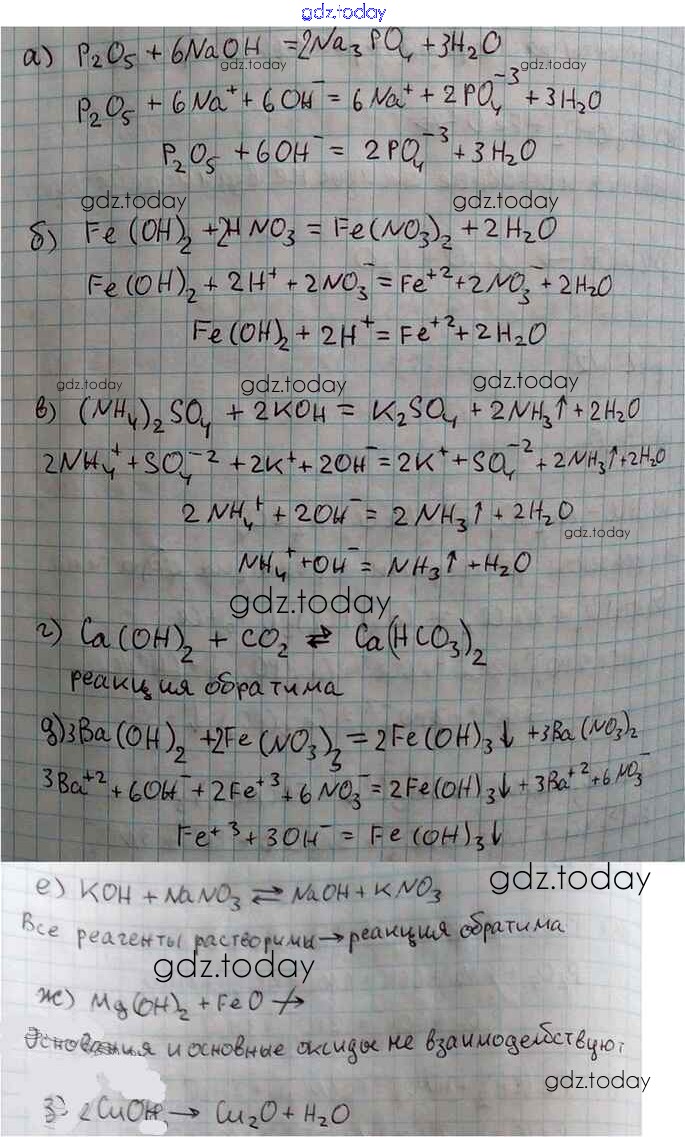 gdz.today
а) P₂O₅ + 6NaOH = 2Na₃PO₄ + 3H₂O
gdz.today gdz.today
P₂O₅ + 6Na⁺ + 6OH⁻ = 6Na⁺ + 2PO₄⁻³ + 3H₂O
P₂O₅ + 6OH⁻ = 2PO₄⁻³ + 3H₂O
gdz.today gdz.today
б) Fe(OH)₂ + 2HNO₃ = Fe(NO₃)₂ + 2H₂O
Fe(OH)₂ + 2H⁺ + 2NO₃⁻ = Fe⁺² + 2NO₃⁻ + 2H₂O
Fe(OH)₂ + 2H⁺ = Fe⁺² + 2H₂O
gdz.today gdz.today gdz.today
в) (NH₄)₂SO₄ + 2KOH = K₂SO₄ + 2NH₃↑ + 2H₂O
2NH₄⁺ + SO₄⁻² + 2K⁺ + 2OH⁻ = 2K⁺ + SO₄⁻² + 2NH₃↑ + 2H₂O
2NH₄⁺ + 2OH⁻ = 2NH₃↑ + 2H₂O
gdz.today
NH₄⁺ + OH⁻ = NH₃↑ + H₂O
gdz.today
г) Ca(OH)₂ + CO₂ ⇄ Ca(HCO₃)₂
реакция обратима
д) 3Ba(OH)₂ + 2Fe(NO₃)₃ = 2Fe(OH)₃↓ + 3Ba(NO₃)₂
3Ba⁺² + 6OH⁻ + 2Fe⁺³ + 6NO₃⁻ = 2Fe(OH)₃↓ + 3Ba⁺² + 6NO₃⁻
Fe⁺³ + 3OH⁻ = Fe(OH)₃↓
gdz.today
е) KOH + NaNO₃ ⇄ NaOH + KNO₃
Все реагенты растворимы → реакция обратима
gdz.today
ж) Mg(OH)₂ + FeO ↛
Основания и основные оксиды не взаимодействую
gdz.today
з) 2CuOH → Cu₂O + H₂O